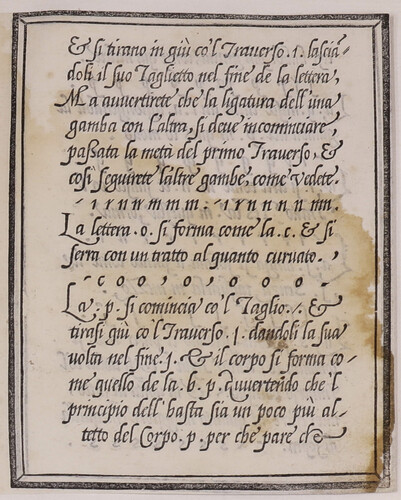 & si tirano in giù co'l Traverso .1. lasciā-
doli il suo Taglietto nel fine de la lettera,
Ma avvertirete che la ligatura dell'una
gamba con l'altra, si deve incominciare,
passata la metà del primo Traverso, &
cosi seguirete l'altre gambe, come vedete.
La lettera .o. si forma come la .c. & si
serra con un tratto al quanto curvato.
c o o o o o o
La .p. si comincia co'l Taglio & 
tirasi giù co'l Traverso .1. dandoli la sua
volta nel fine .1. & il corpo si forma co-
me quello de la .b. p. Avvertendo che'l
principio dell'hasta sia un poco più al-
tetto del Corpo .p. per che pare che